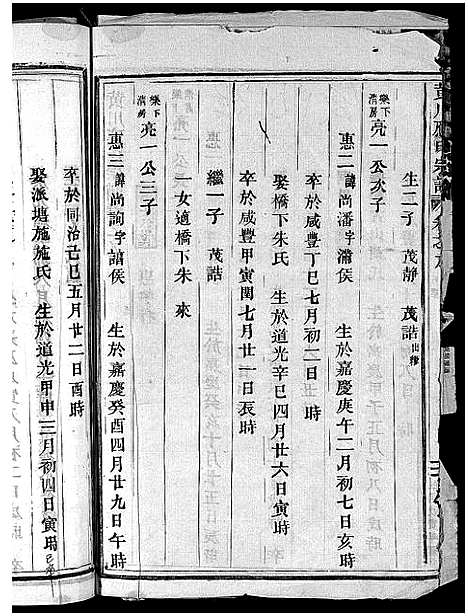 生二子 茂靜 茂誥出繼
樂下清房 亮一公次子
惠二 諱尚潘字瀟侯 生於嘉慶庚午二月初七日亥時
卒於咸豐丁巳七月初二日 時
娶橋下朱氏 生於道光辛巳四月廿六日寅時
卒於咸豐甲寅閏七月廿一日辰時
繼一子 茂誥
一女適橋下朱來
樂下清房 亮一公三子
惠三 諱尚詢字諳侯 生於嘉慶癸酉四月廿九日午時
卒於同治己巳五月廿二日酉時
娶派塘施施氏 生於道光甲申三月初四日寅時